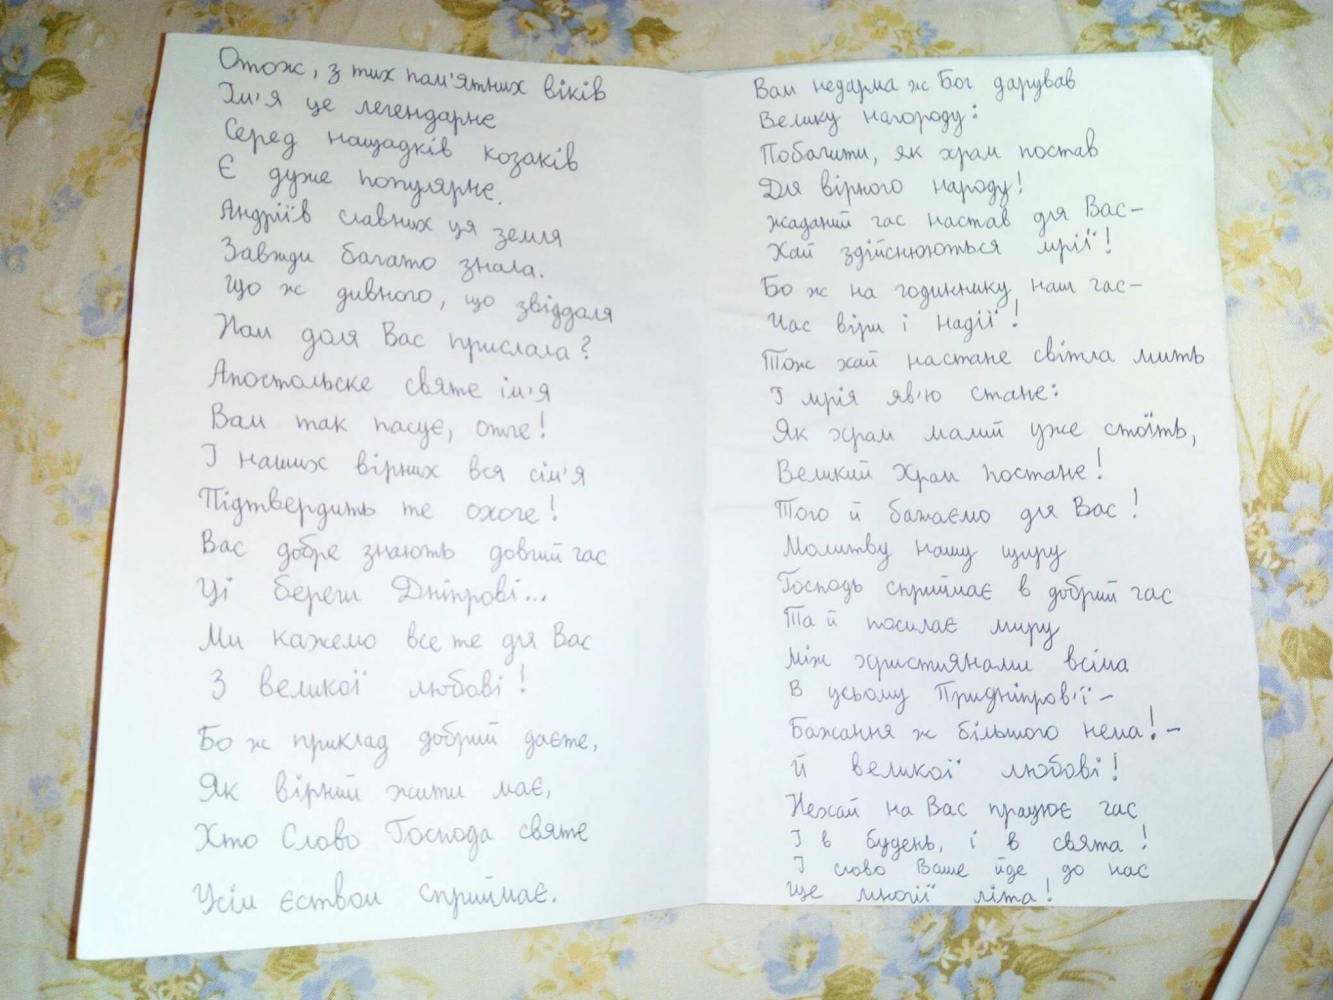 Отож, з тих пам'ятних віків
Ім'я це легендарне
Серед нащадків козаків
Є дуже популярне.
Андріїв славних ця земля
Завжди багато знала.
Що ж дивного, що звіддаля
Нам доля Вас прислала?
Апостольске святе ім'я
Вам так пасує, отче!
І наших вірних вся сім'я
Підтвердить те охоче!
Вас добре знають довгий час
Ці береги Дніпрові...
Ми кажемо все те для Вас
З великої любові!
Бо ж приклад добрий даєте,
Як вірний жити має,
Хто Слово Господа святе
Усім єством сприймає.
Вам недарма ж Бог дарував
Велику нагороду:
Побачити, як храм постав
Для вірного народу!
Жаданий час настав для Вас-
Хай здійснюються мрії!
Бо ж на годиннику наш час-
Час віри і надії!
Тож хай настане світла мить
І мрія яв'ю стане:
Як храм малий уже стоїть,
Великий Храм постане!
Того й бажаємо для Вас!
Молитву нашу щиру
Господь сприймає в добрий час
Та й посилає миру
Між християнами всіма
В усьому Придніпров'ї-
Бажання ж більшого нема!-
Й великої любові!
Нехай на Вас працює час
І в будень, і в свята!
І слово Ваше йде до нас
Ще многії літа!